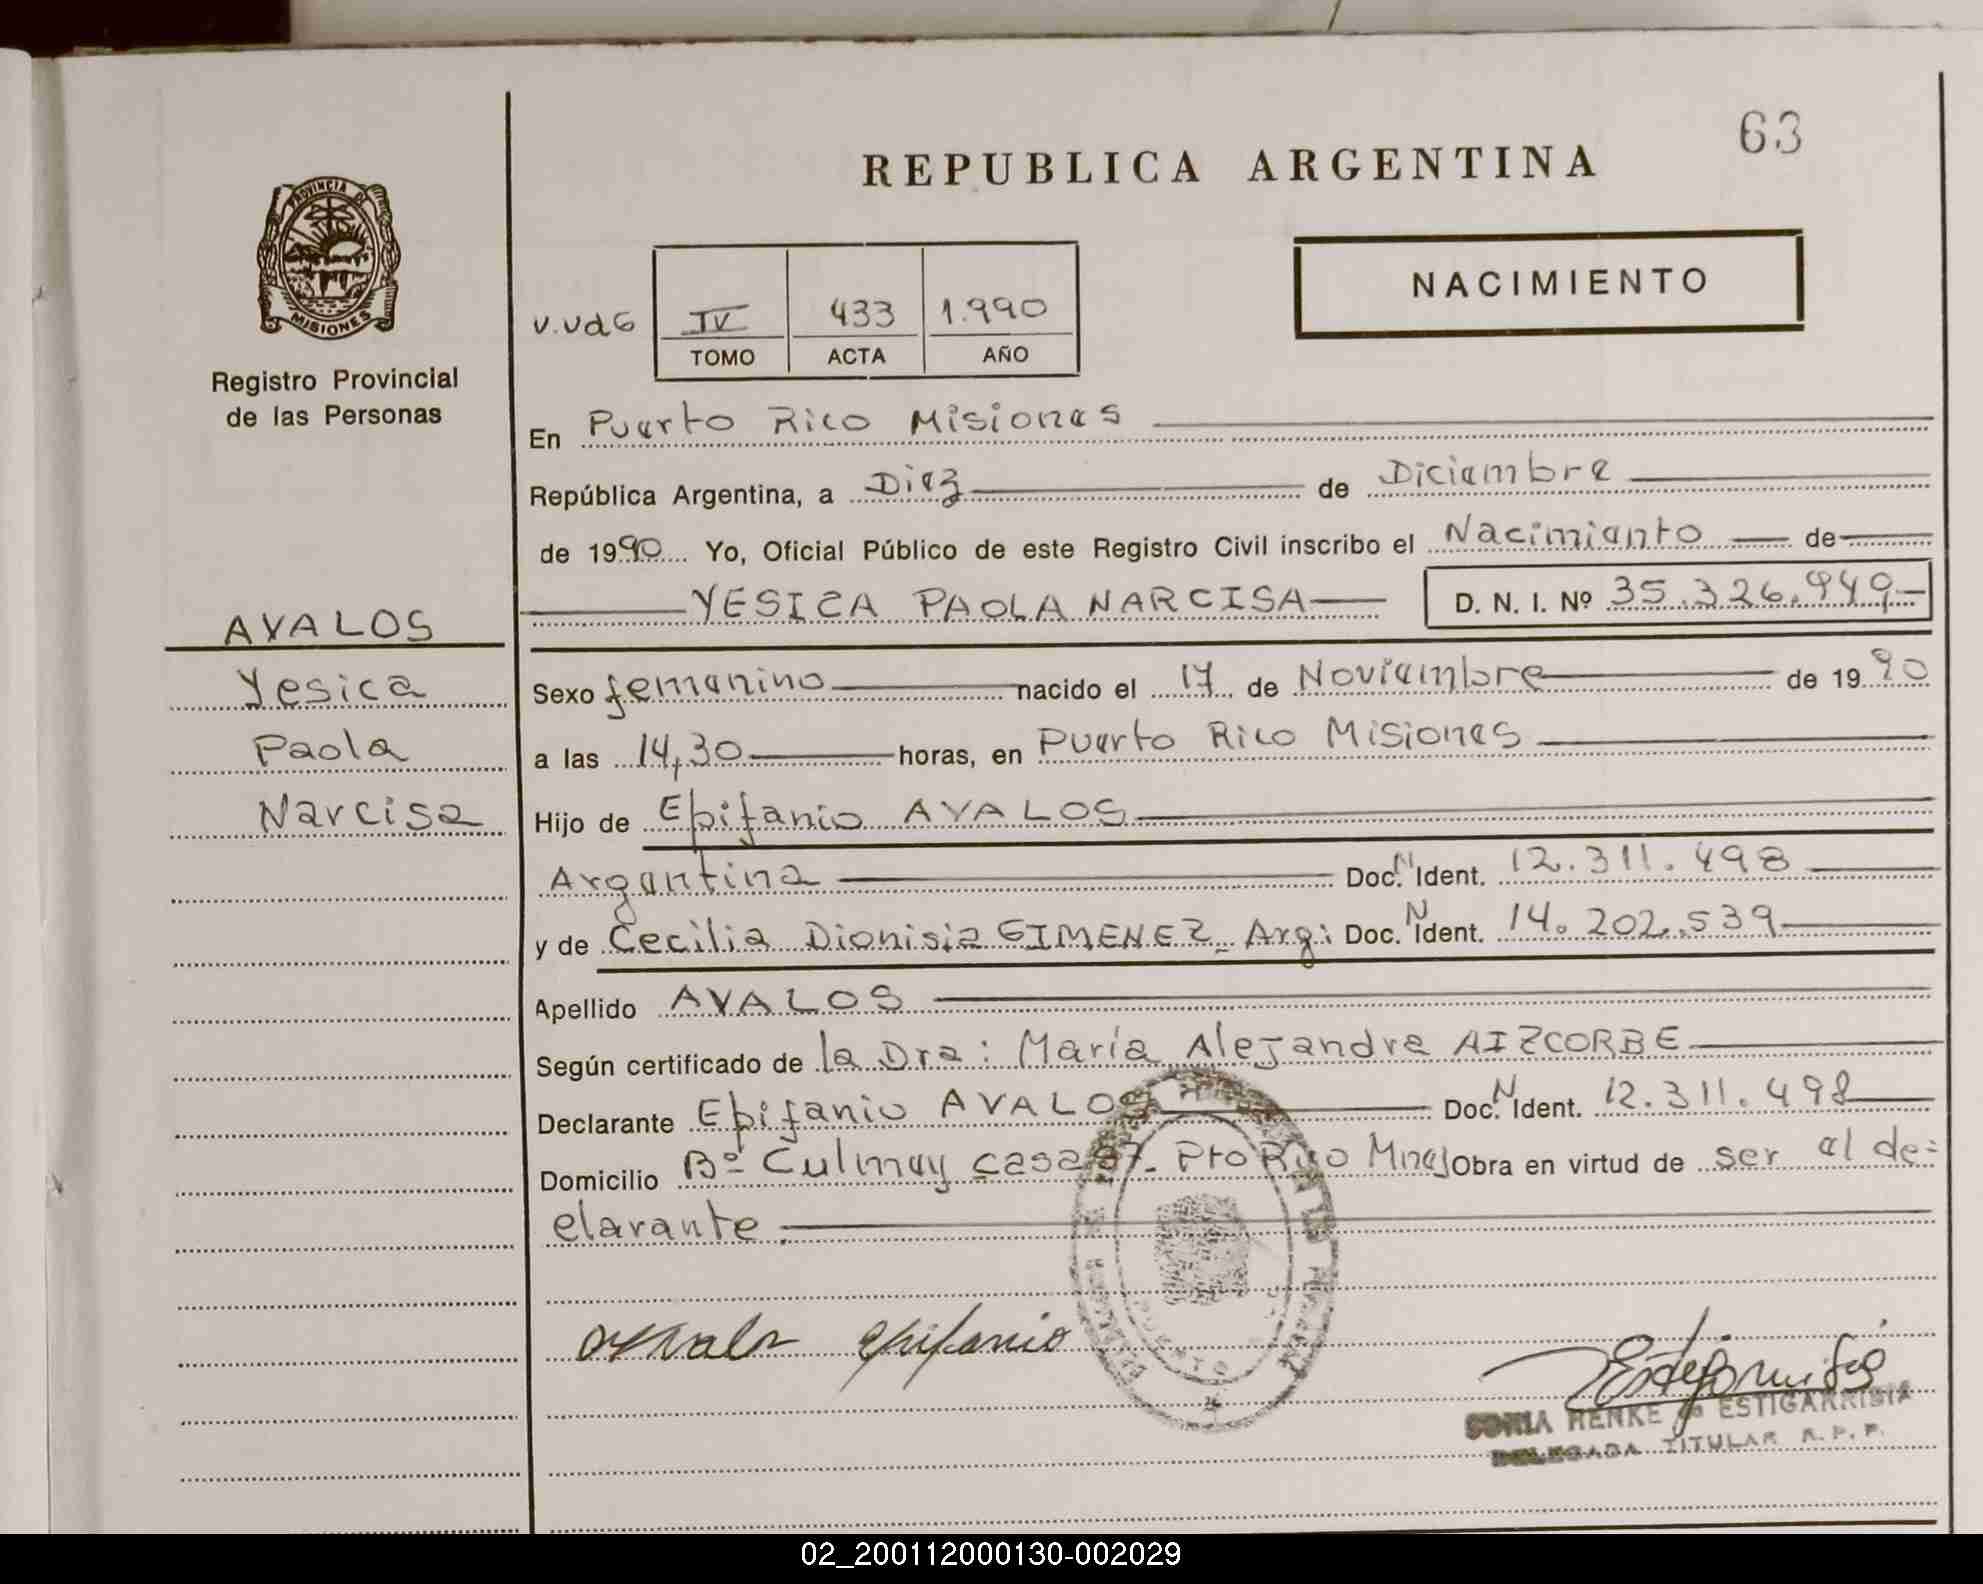 63
REPUBLICA ARGENTINA
PROVINCIA DE
MISIONES
Registro Provincial
de las Personas
NACIMIENTO
V.VdG
IV 433 1.990
TOMO ACTA AÑO
En Puerto Rico Misiones
República Argentina, a Diez de Diciembre
de 1990 Yo, Oficial Público de este Registro Civil inscribo el Nacimiento de
YESICA PAOLA NARCISA D. N. I. Nº 35.326.949
AVALOS
Yesica
Paola
Narcisa
Sexo femenino nacido el 17 de Noviembre de 1990
a las 14,30 horas, en Puerto Rico Misiones
Hijo de Epifanio AVALOS
Argentina Doc. N Ident. 12.311.498
y de Cecilia Dionisia GIMENEZ - Arg: Doc. N Ident. 14.202.539
Apellido AVALOS
Según certificado de la Dra: María Alejandra AIZCORBE
Declarante Epifanio AVALOS Doc. N Ident. 12.311.498
Domicilio Bº Culmey casa 87- Pto Rico Mnes Obra en virtud de ser el de=
clarante.
Avalo epifanio
SONIA HENKE de ESTIGARRIBIA
DELEGADA TITULAR R. P. P.
02_200112000130-002029